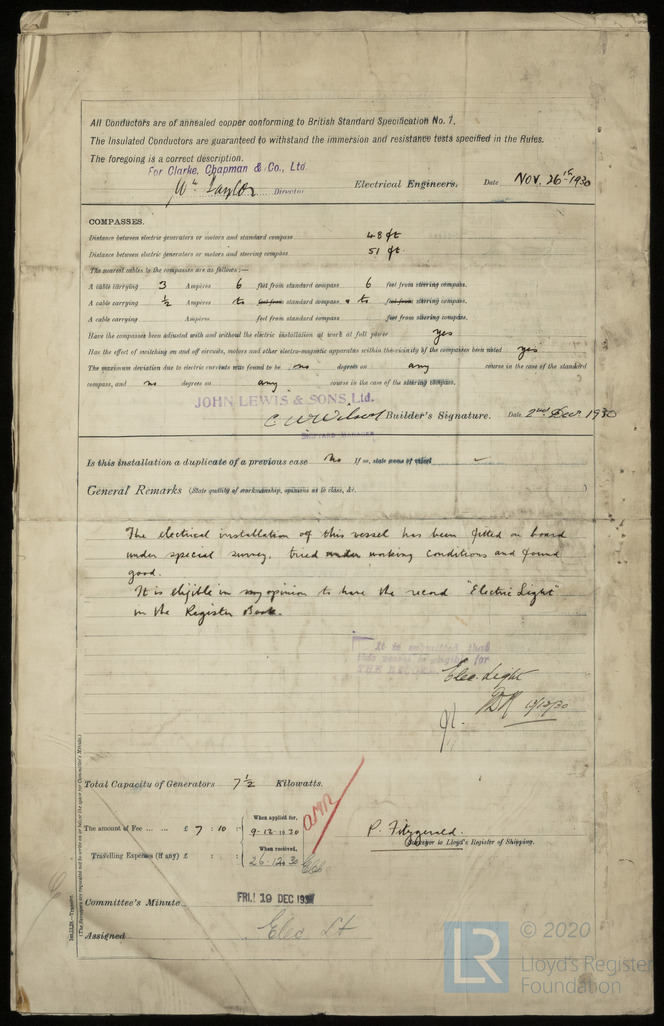 All Conductors are of annealed copper conforming to British Standard Specification No. 7.
The Insulated Conductors are guaranteed to withstand the immersion and resistance tests specified in the Rules.
The foregoing is a correct description.
For Clarke, Chapman & Co., Ltd.
Wm Taylor Director Electrical Engineers. Date Nov. 26th 1930
COMPASSES.
Distance between electric generators or motors and standard compass 48 ft
Distance between electric generators or motors and steering compass 51 ft.
The nearest cables to the compasses are as follows:—
A cable carrying 3 Ampères 6 feet from standard compass 6 feet from steering compass.
A cable carrying ½ Ampères to feet from standard compass & to feet from steering compass.
A cable carrying Ampères feet from standard compass feet from steering compass.
Have the compasses been adjusted with and without the electric installation at work at full power yes
Has the effect of switching on and off circuits, motors and other electro-magnetic apparatus within the vicinity of the compasses been noted yes
The maximum deviation due to electric currents was found to be no degrees on any course in the case of the standard
compass, and no degrees on any course in the case of the steering compass.
JOHN LEWIS & SONS, Ltd.
C W Wilson Builder's Signature. Date 2nd Decr 1930
SHIPYARD MANAGER
Is this installation a duplicate of a previous case No If so, state name of vessel
General Remarks (State quality of workmanship, opinions as to class, &c. )
The electrical installation of this vessel has been fitted on board
under special survey, tried under working conditions and found
good.
It is eligible in my opinion to have the record "Electric Light"
in the Register Book.
It is submitted that
this vessel is eligible for
THE RECORD
Elec. Light
19/12/30
Total Capacity of Generators 7½ Kilowatts.
The amount of Fee ... ... £ 7 : 10 : When applied for, 9-12-1930
Travelling Expenses (if any) £ : : When received, 26-12-30
P. Fitzgerald.
Surveyor to Lloyd's Register of Shipping.
Committee's Minute FRI. 19 DEC 1930
Assigned Elec Lt
(The Surveyors are requested not to write on or below the space for Committee's Minute.)
© 2020
LR Lloyd's Register
Foundation